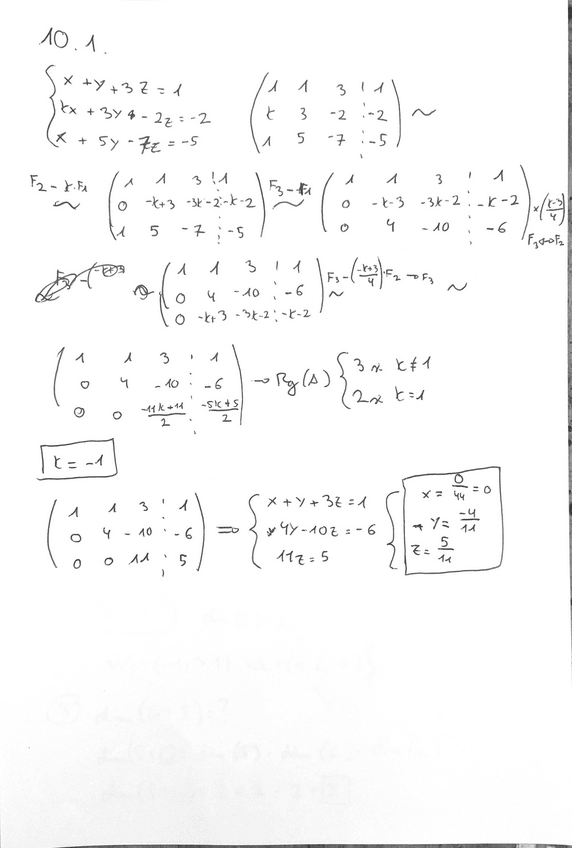 10.1.
{ x + y + 3z = 1
kx + 3y - 2z = -2
x + 5y - 7z = -5
( 1 1 3 | 1
k 3 -2 | -2
1 5 -7 | -5 ) ~
F2 - k·F1 ~
( 1 1 3 | 1
0 -k+3 -3k-2 | -k-2
1 5 -7 | -5 )
F3 - F1 ~
( 1 1 3 | 1
0 -k-3 -3k-2 | -k-2
0 4 -10 | -6 )
×(k-3/4)
F3↔F2
( 1 1 3 | 1
0 4 -10 | -6
0 -k+3 -3k-2 | -k-2 )
F3 - (-k+3/4)·F2 → F3 ~
~
( 1 1 3 | 1
0 4 -10 | -6
0 0 -11k+11/2 | -5k+5/2 )
→ Rg(A) { 3 x k≠1
2 x k=1
k = -1
( 1 1 3 | 1
0 4 -10 | -6
0 0 11 | 5 )
⇒ { x + y + 3z = 1
4y - 10z = -6
11z = 5
{ x = 0/44 = 0
y = -4/11
z = 5/11